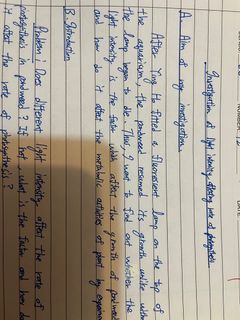 Investigation of light intensity affecting rate of photosynthesis
A. Aim of my investigation
After Ying Ho fitted a fluorescent lamp on the top of
the aquarium, the pondweed resumed its growth unlike when
the lamp began to die. Thus, I want to find out whether the
light intensity is the factor which affect the growth of pondweed
and how do it affect the metabolic activities of plant by experim
B. Introduction
Problem: Does different light intensity affect the rate of
photosynthesis in pondweed? If not, what is the factor and how do
it affect the rate of photosynthesis?